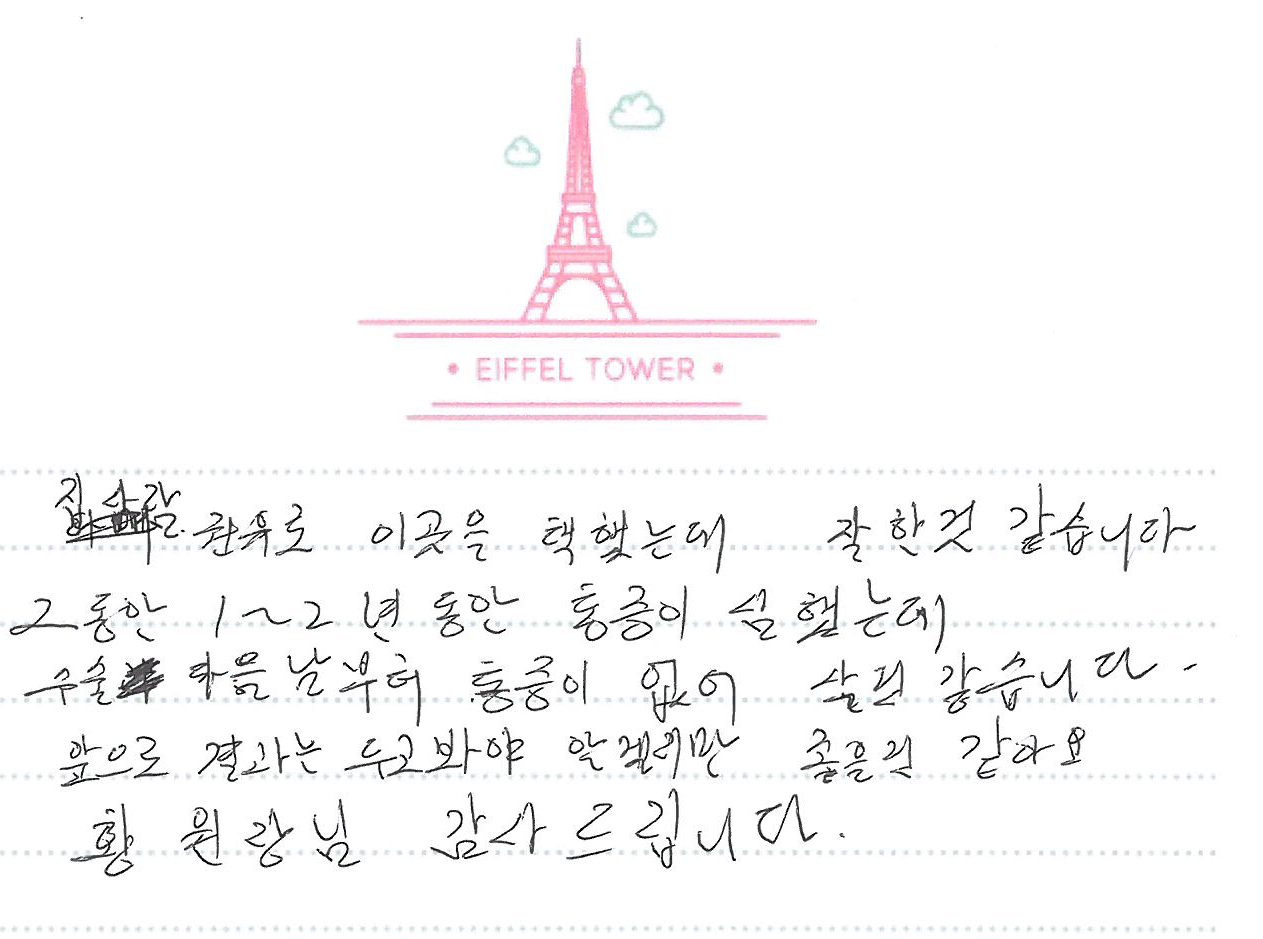 • EIFFEL TOWER •
집사람
권유로 이곳을 택했는데 잘한것 같습니다
그동안 1~2년 동안 통증이 심했는데
수술 다음날부터 통증이 없어 살것 같습니다.
앞으로 결과는 두고봐야 알겠지만 좋을것 같아요
황 원장님 감사드립니다.